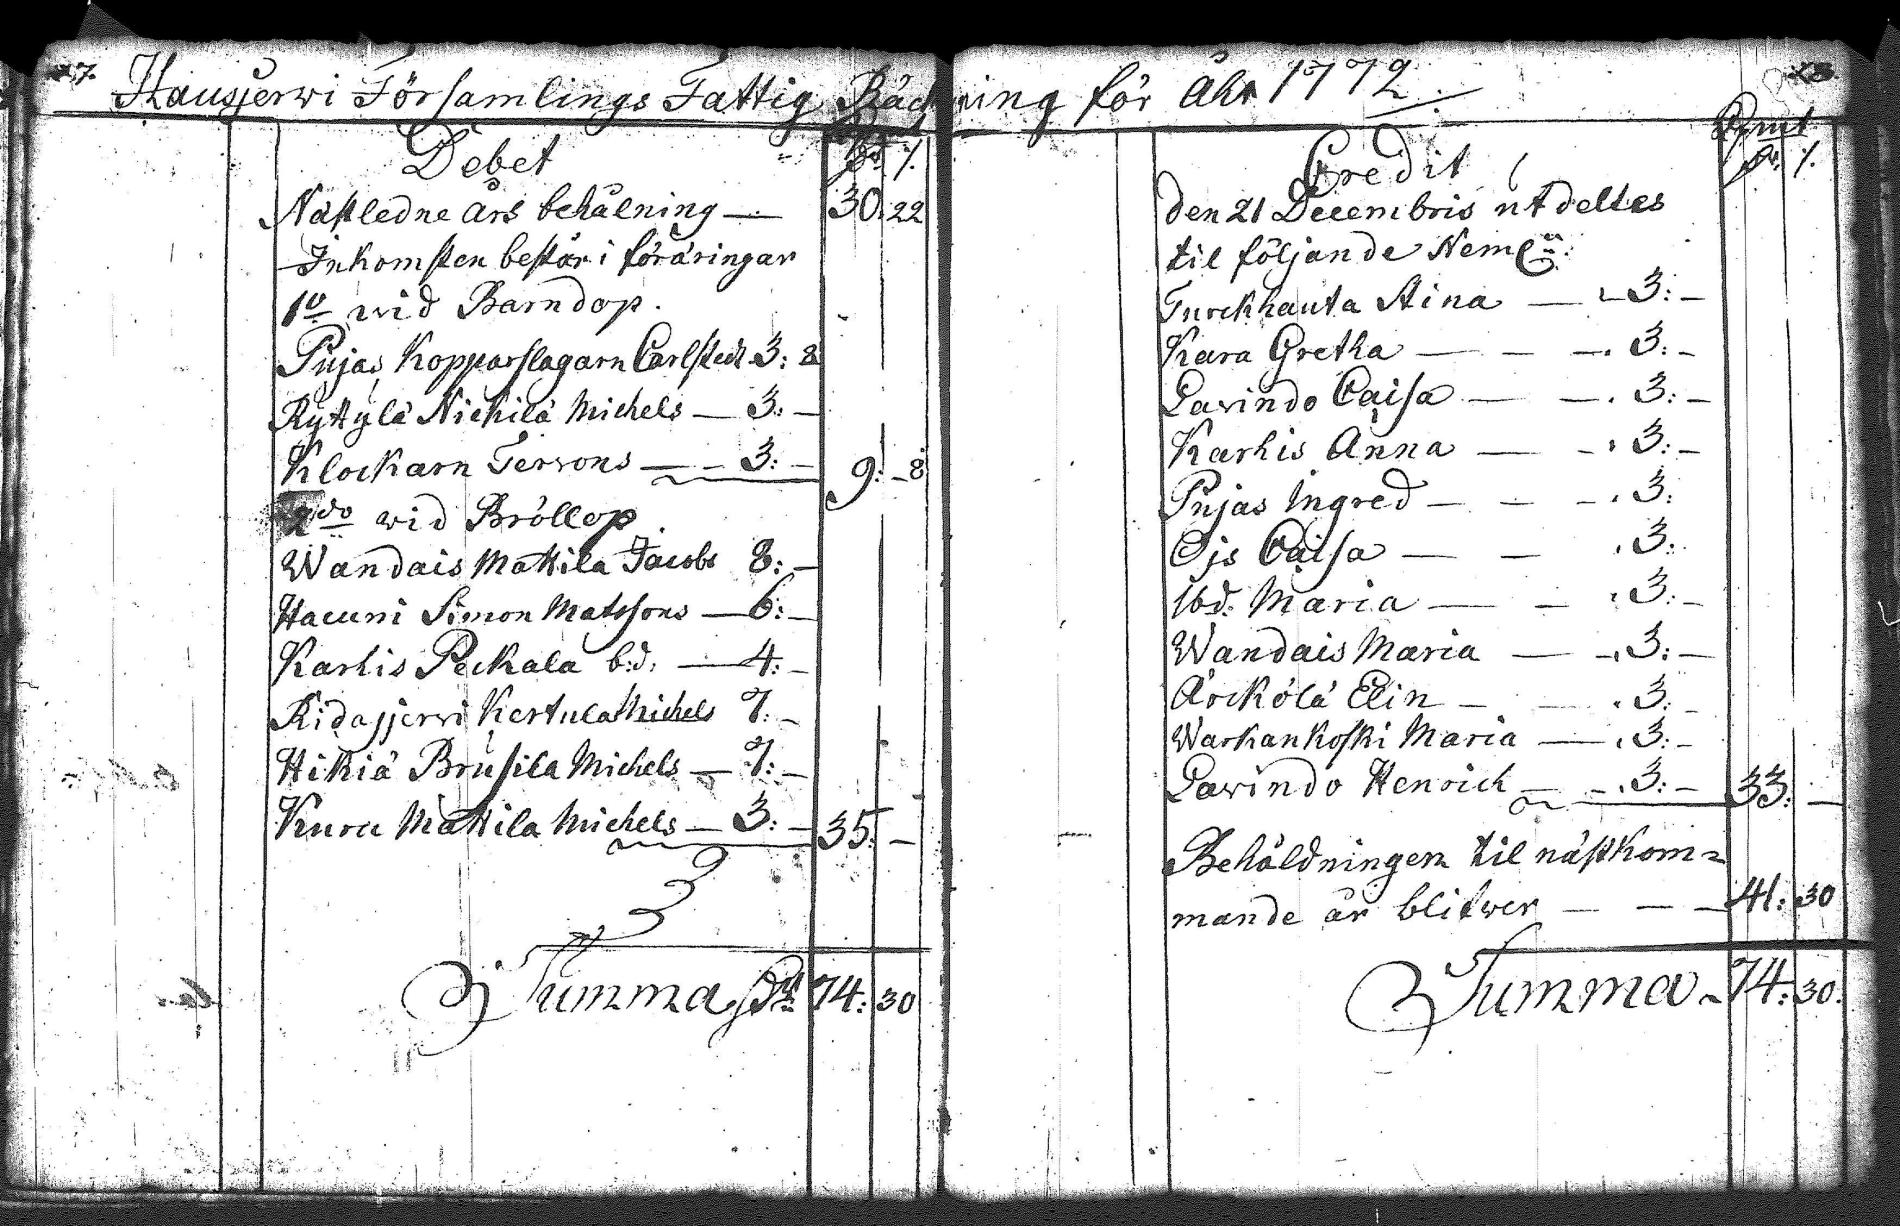 Hausjerwi Församlings Fattig Räckning för Åhr 1772.
Debet
Nästledne års behålning — 30. 22
Inkomsten består i föräringar
1o wid Barndop.
Pujas Kopparslagarn Carlstedt 3: 8
Ryttylä Nickilä Michels — 3: —
Klockarn Terrons — — 3: — 9: — 8
2do wid Bröllop
Wandais Mattila Jacobs 8: —
Hacuni Simon Matssons — 6: —
Karhis Peckala b:d: — 4: —
Ridasjerwi Kertula Michels 7: —
Hikiä Brusila Michels — 7: —
Kuru Mattila Michels — 3: — 35: —
Summa 74: 30
Credit
den 21 Decembris utdeltes
til följande Neml:
Turckhauta Stina — 3: —
Kara Gretha — — —. 3: —
Lavindo Caisa — —. 3: —
Karhis Anna — — 3: —
Pujas Ingred — — —. 3:
Ojs Caisa — — . 3:
Ibd: Maria — — 3: —
Wandais Maria — —. 3: —
Årckölä Elin — — . 3: —
Warkankoski Maria — . 3: —
Lavindo Henrich — —. 3: — 33: —
Behåldningen til nästkom=
mande år blifwer — — — 41: 30
Summa 74: 30.